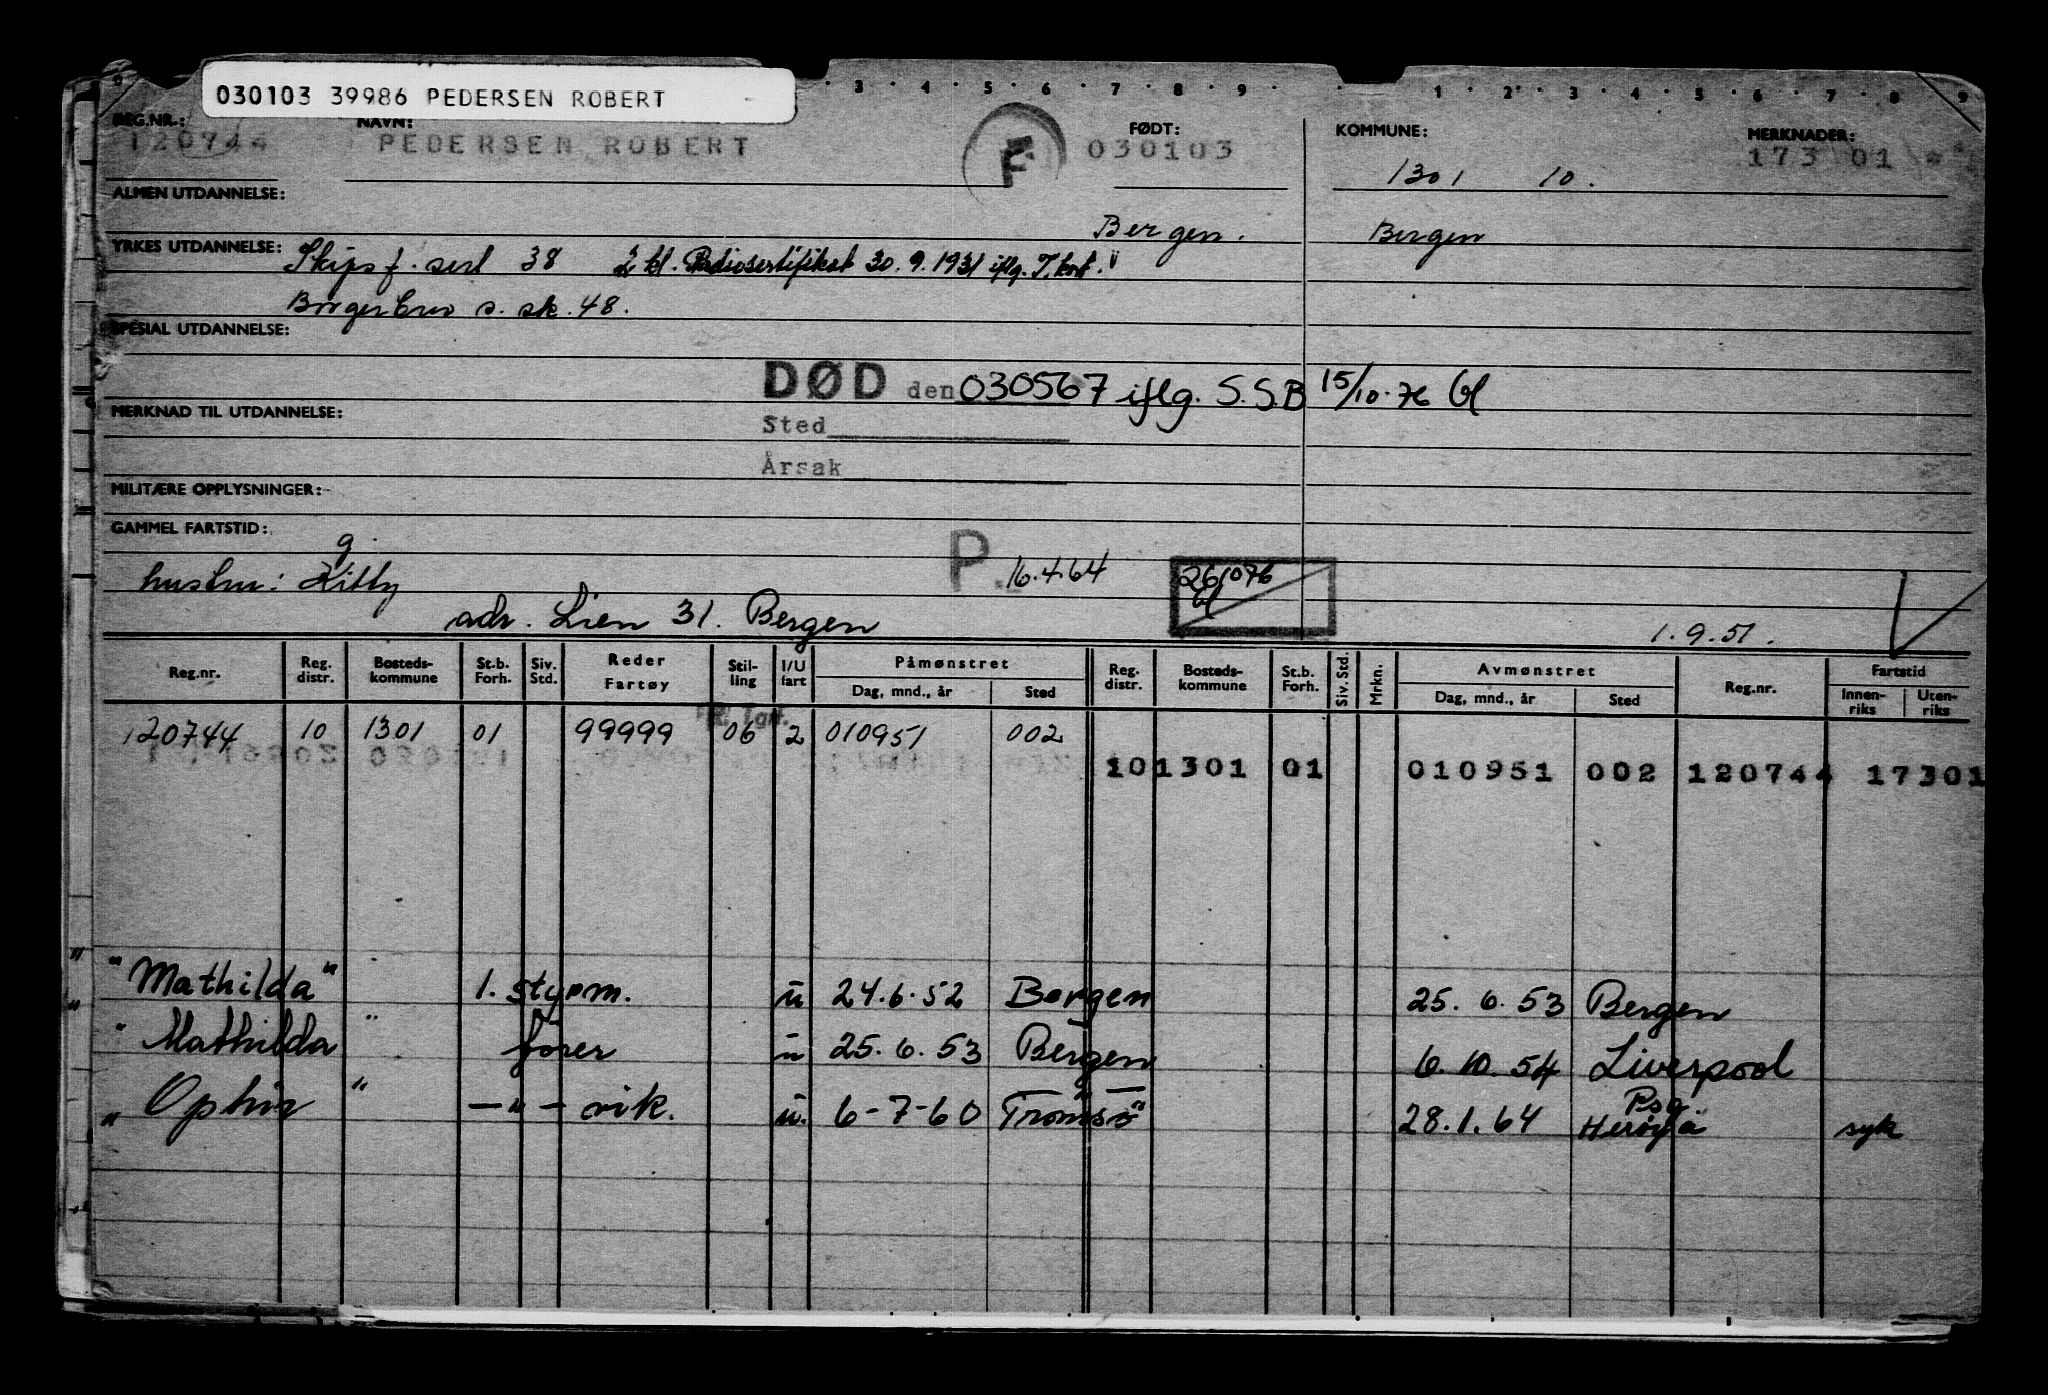 030103 39986 PEDERSEN ROBERT
3 4 5 6 7 8 9 1 2 3 4 5 6 7 8 9
REG.NR.: NAVN: FØDT: KOMMUNE: MERKNADER:
120744 PEDERSEN ROBERT F 030103 1301 10. 173 01 *
ALMEN UTDANNELSE:
Bergen. Bergen
YRKES UTDANNELSE: Skipsf. sert 38 2 kl. Radiosertifikat 30.9.1931 iflg. T.kort.
Borgerbrev s. sk. 48.
SPESIAL UTDANNELSE:
DØD den 030567 iflg. S.S.B 15/10-76 bl
MERKNAD TIL UTDANNELSE:
Sted
Årsak
MILITÆRE OPPLYSNINGER:-
GAMMEL FARTSTID:
g.
hustru: Kitty P. 16.4.64 261076 bl
adr. Lien 31. Bergen 1.9.51.
Reg.nr. Reg. distr. Bosteds-kommune St.b. Forh. Siv. Std. Reder Fartøy Stil-ling I/U fart Påmønstret Dag, mnd., år Sted Reg. distr. Bosteds-kommune St.b. Forh. Siv. Std. Mrkn. Avmønstret Dag, mnd., år Sted Reg.nr. Fartstid Innen-riks Uten-riks
120744 10 1301 01 99999 06 2 010951 002
101301 01 010951 002 120744 17301
"Mathilda" 1. styrm. u 24.6.52 Bergen 25.6.53 Bergen
"Mathilda" fører u 25.6.53 Bergen 6.10.54 Liverpool
"Ophir" —"— vik. u. 6-7-60 Tromsö 28.1.64 Psg. Herøya syk